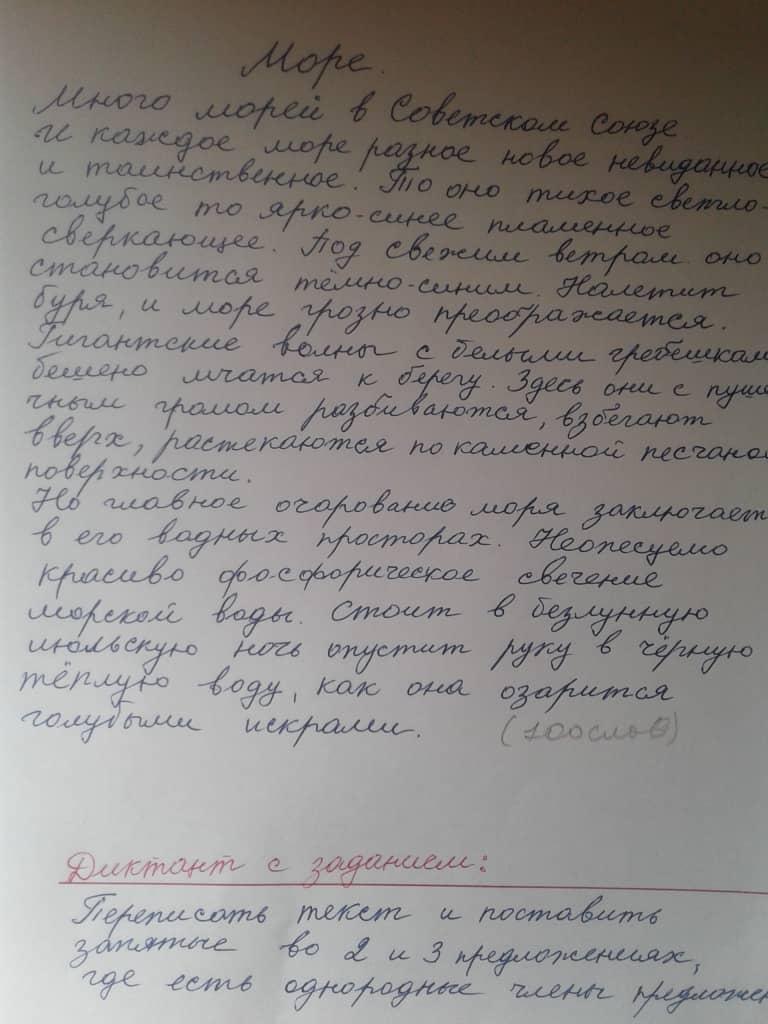 Море.
Много морей в Советском Союзе
И каждое море разное новое невиданное
и таинственное. То оно тихое светло-
голубое то ярко-синее пламенное
сверкающее. Под свежим ветрам оно
становится тёмно-синим. Налетит
буря, и море грозно преображается.
Гигантские волны с белыми гребешкам
бешено мчатся к берегу. Здесь они с пуше
чным громом разбиваются, взбегают
вверх, растекаются по каменной песчаной
поверхности.
Но главное очарование моря заключает
в его водных просторах. Неописуемо
красиво фосфорическое свечение
морской воды. Стоит в безлунную
июльскую ночь опустит руку в чёрную
тёплую воду, как она озарится
голубыми искрами. (100 слов)
Диктант с заданием:
Переписать текст и поставить
запятые во 2 и 3 предложениях,
где есть однородные члены предложен